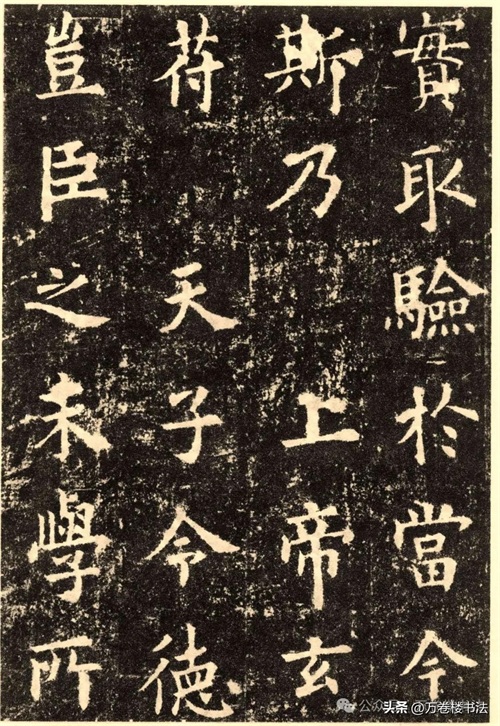 實取驗於當今
斯乃 上帝玄
苻 天子令德
豈臣之末學所
公众号
头条 @万卷楼书法